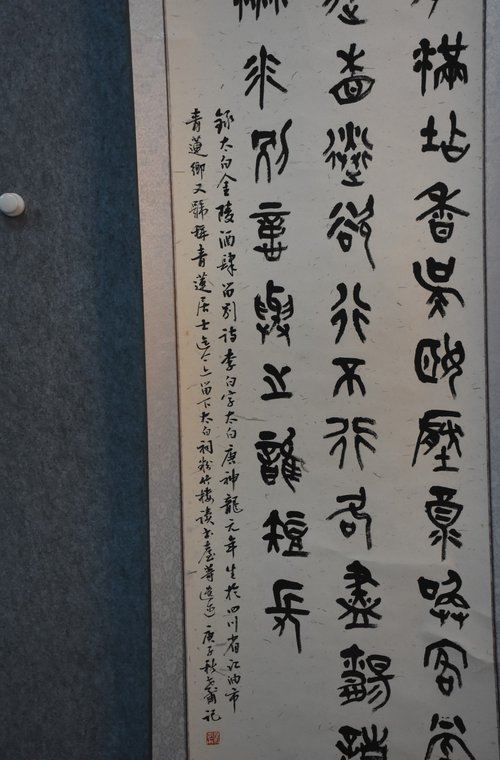 滿坫香吴姬壓酒唤客嘗
送欲行不行各盡觴請
水别意與之誰短長
錄太白金陵酒肆留别诗李白字太白唐神龍元年生於四川省江油市
青蓮鄉又號稱青蓮居士迄今上留下太白祠粉竹樓读书臺等遗迹庚子秋記